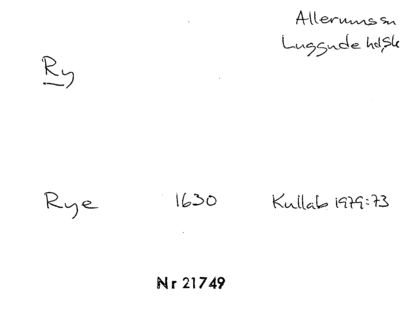 Allerums sn
Luggude hd, Sk
Ry
Rye 1630 Kullab 1979:73
Nr 21749